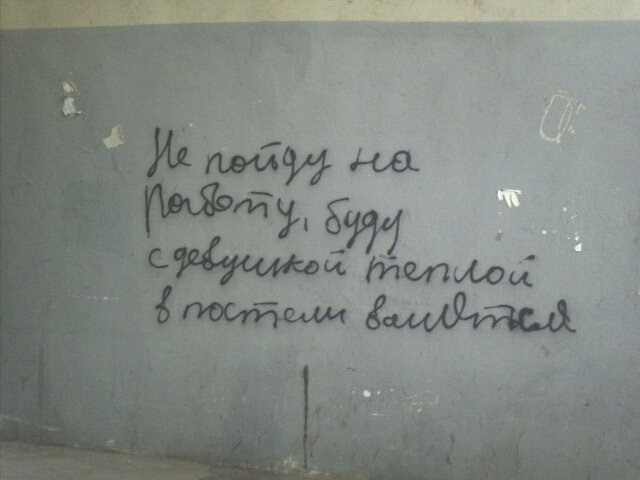 Не пойду на
работу, буду
с девушкой теплой
в постели валятся